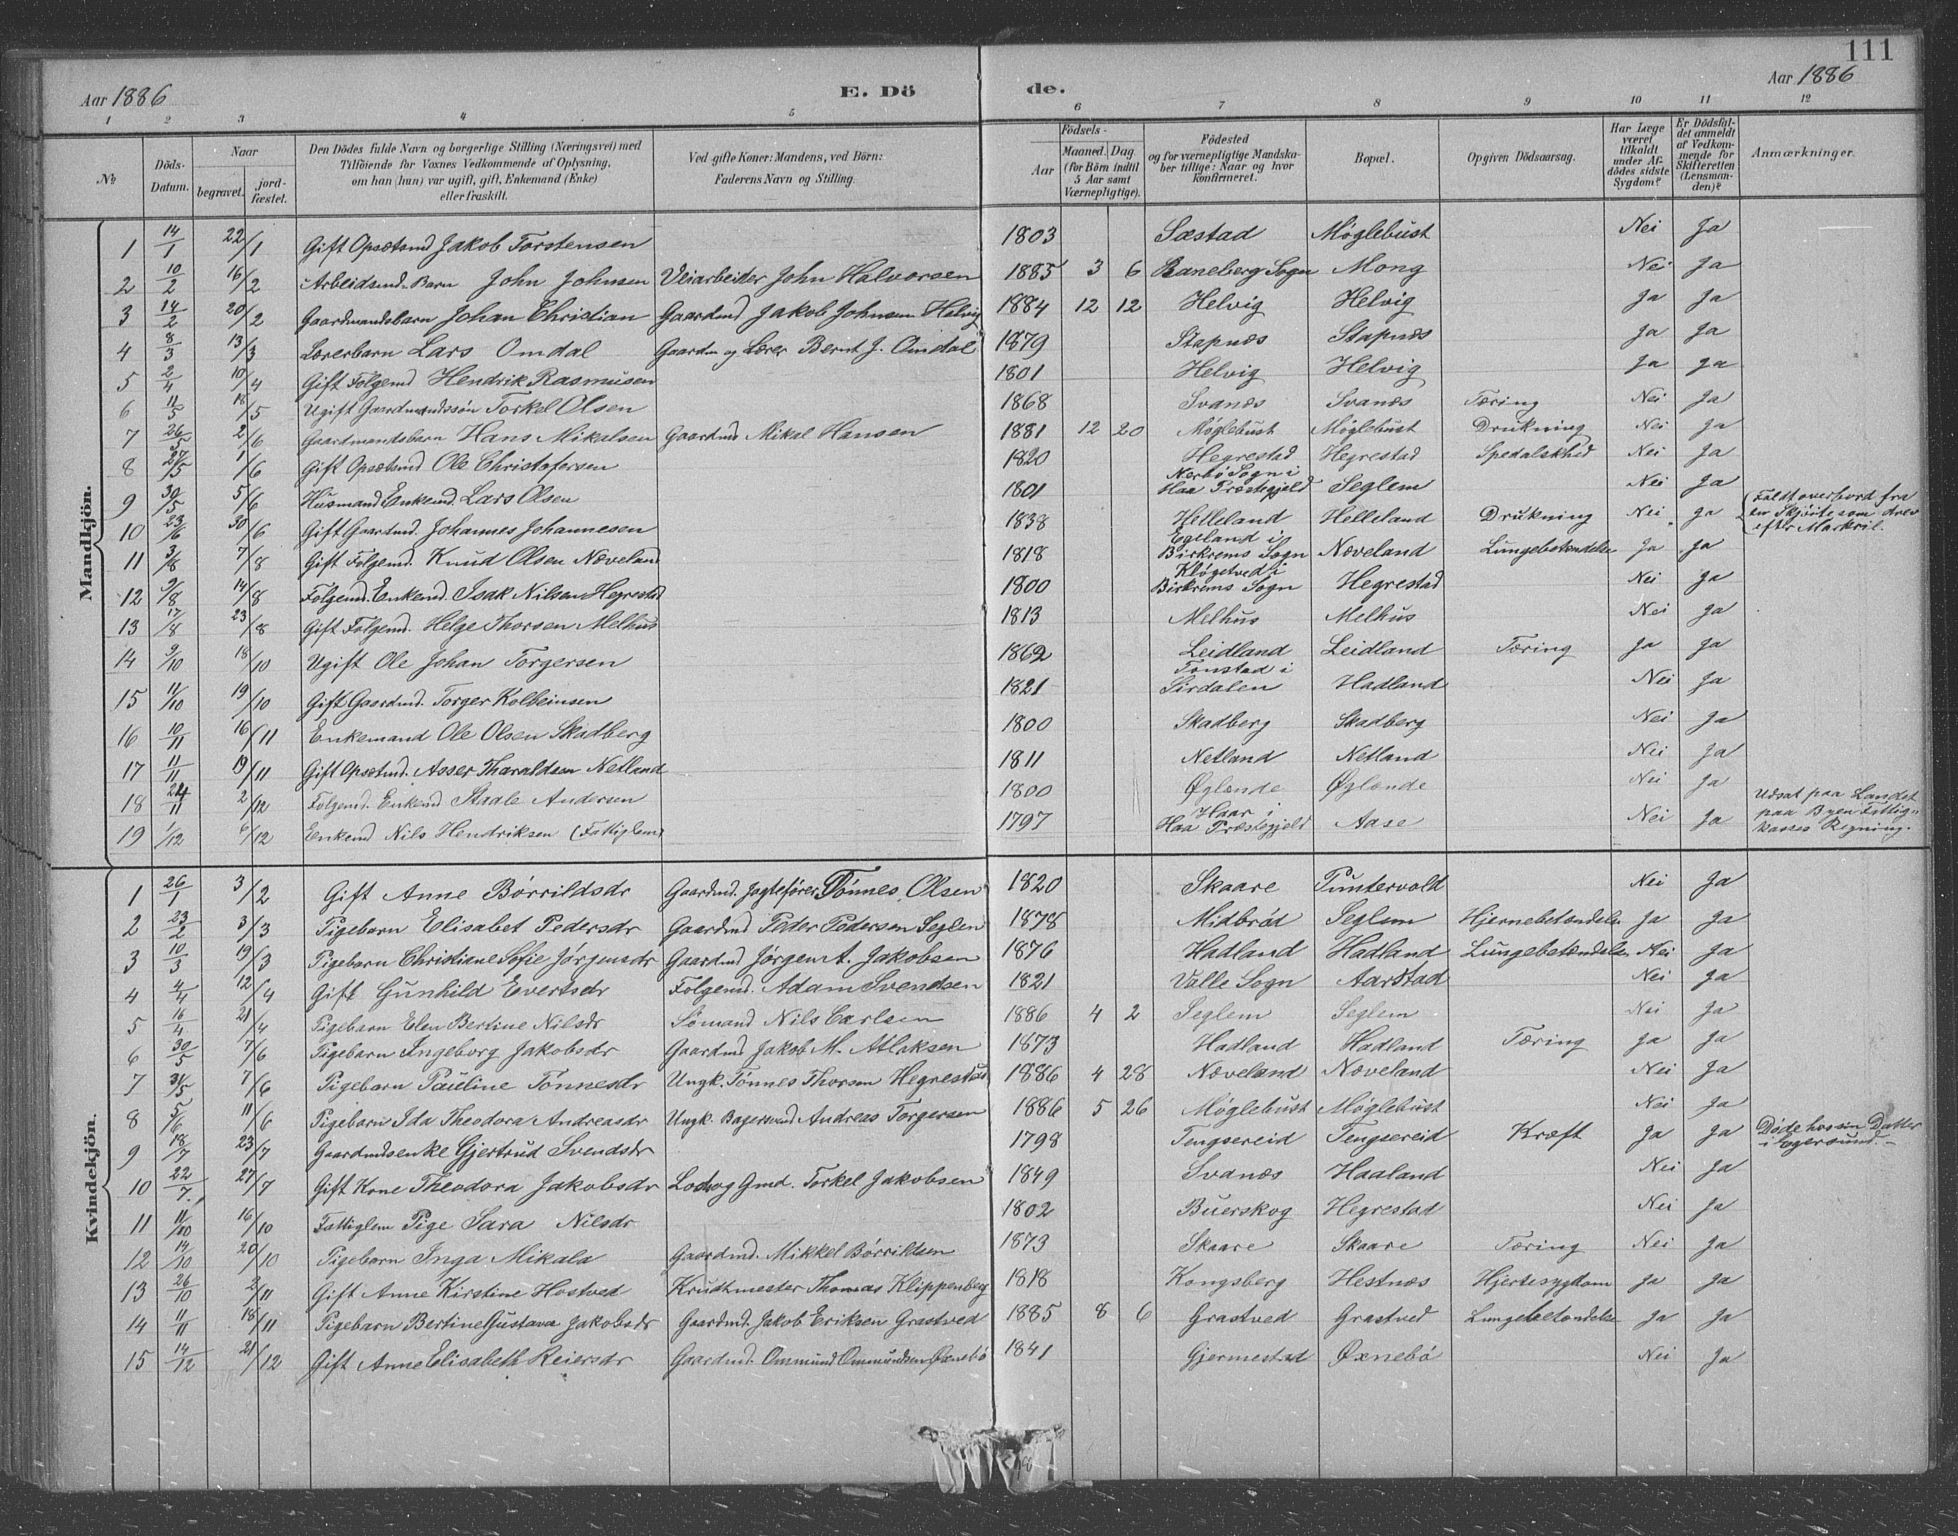 111
Aar 1886 E. Dö de. Aar 1886
1 2 3 4 5 6 7 8 9 10 11 12
№ Döds-Datum. Naar begravet. jordfæstet. Den Dödes fulde Navn og borgerlige Stilling (Næringsvei) med Tilföiende for Voxnes Vedkommende af Oplysning, om han (hun) var ugift, gift, Enkemand (Enke) eller fraskilt. Ved gifte Koner: Mandens, ved Börn: Faderens Navn og Stilling. Födsels- Aar Maaned. Dag (for Börn indtil 5 Aar samt Værnepligtige). Födested og for værnepligtige Mandskaber tillige: Naar og hvor konfirmeret. Bopæl. Opgiven Dödsaarsag. Har Læge været tilkaldt under Afdödes sidste Sygdom? Er Dödsfaldet anmeldt af Vedkommende for Skifteretten (Lensmanden)? Anmærkninger.
Mandkjön.
1 14/1 22/1 Gift Opsætsmd Jakob Torstensen 1803 Sæstad Møglebust Nei Ja
2 10/2 16/2 Arbeidsmd. Barn John Johnsen Veiarbeider John Halvorsen 1885 3 6 Baneberg Sogn Mong Nei Ja
3 14/2 20/2 Gaardmandsbarn Johan Christian Gaardmd Jakob Johnsen Helvig 1884 12 12 Helvig Helvig Ja Ja
4 8/3 13/3 Lærerbarn Lars Omdal Gaardm og Lærer Bernt J. Omdal 1879 Stapnæs Stapnæs Ja Ja
5 2/4 10/4 Gift Følgemd Hendrik Rasmusen 1801 Helvig Helvig Ja Ja
6 11/5 18/5 Ugift Gaardmandssøn Torkel Olsen 1868 Svanæs Svanæs Tæring Nei Ja
7 26/5 2/6 Gaardmandsbarn Hans Mikalsen Gaardmd Mikal Hansen 1881 12 20 Møglebust Møglebust Drukning Nei Ja
8 27/5 1/6 Gift Opsætmd Ole Christofersen 1820 Hegrestad Hegrestad Spedalskhed Nei Ja
9 30/5 5/6 Husmand Enkemd. Lars Olsen 1801 Nærbø Sogn i Haa Præstegjeld Seglem Nei Ja
10 23/6 30/6 Gift Gaardmd. Johannes Johannesen 1838 Helleland Helleland Drukning Nei Ja Faldt overbord fra en Skjøite som drev efter Markril.
11 3/8 7/8 Gift Følgemd. Knud Olsen Næveland 1818 Egeland i Birkrems Sogn Næveland Lungebetændelse Ja Ja
12 9/8 14/8 Følgemd. Enkemd. Isak Nilsen Hegrestad 1800 Kløgetved i Birkrems Sogn Hegrestad Nei Ja
13 17/8 23/8 Gift Følgemd. Helge Thorsen Melhus 1813 Melhus Melhus Nei Ja
14 9/10 18/10 Ugift Ole Johan Torgersen 1862 Leidland Leidland Tæring Ja Ja
15 11/10 19/10 Gift Gaardmd. Torger Kolbeinsen 1821 Tonstad i Sirdalen Hadland Nei Ja
16 10/11 16/11 Enkemand Ole Olsen Skadberg 1800 Skadberg Skadberg Nei Ja
17 11/11 19/11 Gift Opsætmd. Asser Tharaldsen Netland 1811 Netland Netland Nei Ja
18 24/11 2/12 Følgemd. Enkemd Staale Andersen 1800 Øglænde Øglænde Nei Ja
19 1/12 6/12 Enkemd Nils Hendriksen (Fattiglem) 1797 Haar i Haa Præstegjeld Aase Nei Ja Udsat paa Landet paa Byen Fattigkasses Regning.
Kvindekjön.
1 26/1 3/2 Gift Anne Børrildsdr Gaardmd. Jagtefører Tønnes Olsen 1820 Skaare Puntervold Nei Ja
2 23/2 3/3 Pigebarn Elisabet Pedersdr Gaardmd Peder Pedersen Seglem 1878 Midbrød Seglem Hjernebetændelse Ja Ja
3 10/3 19/3 Pigebarn Christiane Sofie Jørgensdr Gaardmd Jørgen A. Jakobsen 1876 Hadland Hadland Lungebetændelse Nei Ja
4 4/4 12/4 Gift Gunhild Evertsdr Følgemd. Adam Svendsen 1821 Valle Sogn Aarstad Nei Ja
5 16/4 21/4 Pigebarn Elen Bertine Nilsdr Sømand Nils Carlsen 1886 4 2 Seglem Seglem Nei Ja
6 30/5 7/6 Pigebarn Ingeborg Jakobsdr Gaardmd Jakob M. Atlaksen 1873 Hadland Hadland Tæring Ja Ja
7 31/5 7/6 Pigebarn Pauline Tønnesdr Ungk. Tønnes Thorsen Hegrestad 1886 4 28 Næveland Næveland Nei Ja
8 5/6 11/6 Pigebarn Ida Theodora Andreasdr Ungk. Bagersvend Andreas Torgersen 1886 5 26 Møglebust Møglebust Nei Ja
9 18/7 23/7 Gaardmdsenke Gjertrud Svendsdr 1798 Tengsereid Tengsereid Kræft Ja Ja Døde hos sin Datter i Egersund.
10 22/7 27/7 Gift Kone Theodora Jakobsdr Lods og Gmd. Torkel Jakobsen 1849 Svanæs Haaland Nei Ja
11 11/10 16/10 Fattiglem Pige Sara Nilsdr 1802 Buerskog Hegrestad Nei Ja
12 14/10 20/10 Pigebarn Inga Mikala Gaardmd. Mikkel Børrildsen 1873 Skaare Skaare Tæring Nei Ja
13 26/10 2/11 Gift Anne Kirstine Hostved Krudtmester Thomas Klippenberg 1818 Kongsberg Hestnæs Hjertesygdom Ja Ja
14 11/11 18/11 Pigebarn Bertine Gustava Jakobsdr Gaardmd. Jakob Eriksen Grastved 1885 8 6 Grastved Grastved Lungebetændelse Ja Ja
15 14/12 21/12 Gift Anne Elisabeth Reiersdr Gaardmd. Ommund Ommundsen Øxnebø 1841 Gjermestad Øxnebö Nei Ja